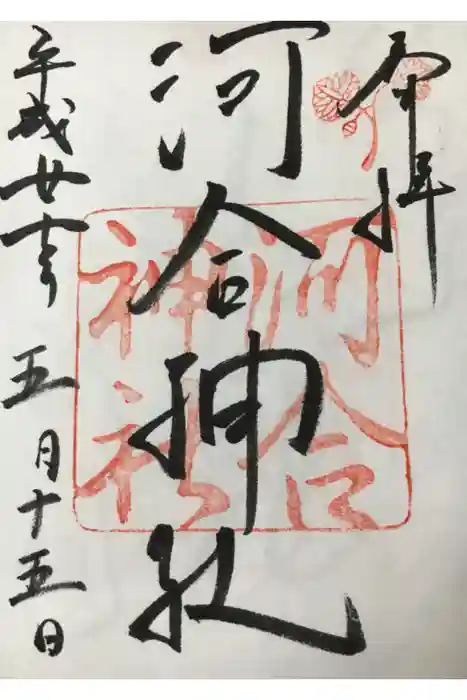 奉拝
河合神社
河合
神社
平成廿七年五月十五日